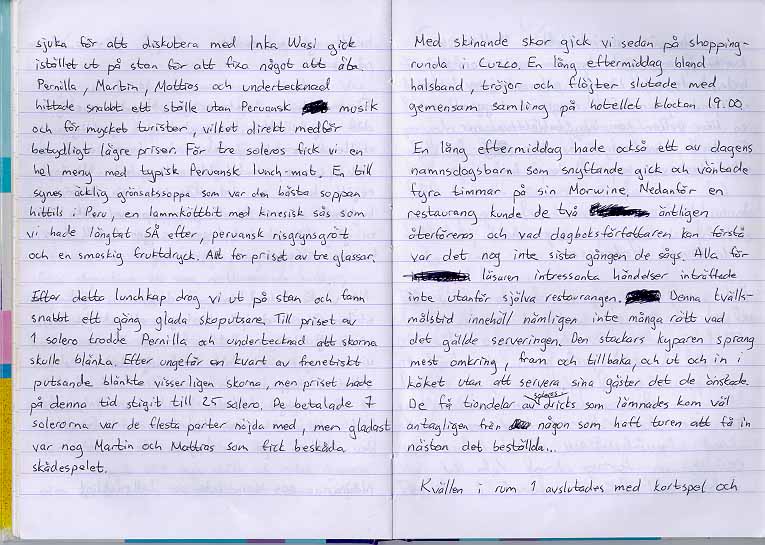 sjuka för att diskutera med Inka Wasi gick
istället ut på stan för att fixa något att äta
Pernilla, Martin, Mattias och undertecknad
hittade snabbt ett ställe utan Peruansk musik
och för mycket turister, vilket direkt medför
betydligt lägre priser. För tre soleros fick vi en
hel meny med typisk Peruansk lunch-mat. En till
synes äcklig grönsatssoppa som var den bästa soppan
hittils i Peru, en lammköttbit med kinesisk sås som
vi hade längtat SÅ efter, peruansk risgrynsgröt
och en smaskig fruktdryck. Allt för priset av tre glassar.
Efter detta lunchkap drog vi ut på stan och fann
snabbt ett gäng glada skoputsare. Till priset av
1 solero trodde Pernilla och undertecknad att skorna
skulle blänka. Efter ungefär en kvart av frenetiskt
putsande blänkte visserligen skorna, men priset hade
på denna tid stigit till 25 solero. De betalade 7
solerorna var de flesta parter nöjda med, men gladast
var nog Martin och Mattias som fick beskåda
skådespelet.
Med skinande skor gick vi sedan på shopping-
runda i Cuzco. En lång eftermiddag bland
halsband, tröjor och flöjter slutade med
gemensam samling på hotellet klockan 19.00
En lång eftermiddag hade också ett av dagens
namnsdagsbarn som snyftande gick och väntade
fyra timmar på sin Morwine. Nedanför en
restaurang kunde de två äntligen
återförenas och vad dagboksförfattaren kan förstå
var det nog inte sista gången de sågs. Alla för
läsaren intressanta händelser inträffade
inte utanför själva restaurangen. Denna tvålls-
målstid innehöll nämligen inte många rätt vad
det gällde serveringen. Den stackars kyparen sprang
mest omkring, fram och tillbaka, och ut och in i
köket utan att servera sina gäster det de önstade.
De få tiondelar av soleros dricks som lämnades kom väl
antagligen från någon som haft turen att få in
nästan det beställda...
Kvällen i rum 1 avslutades med kortspel och